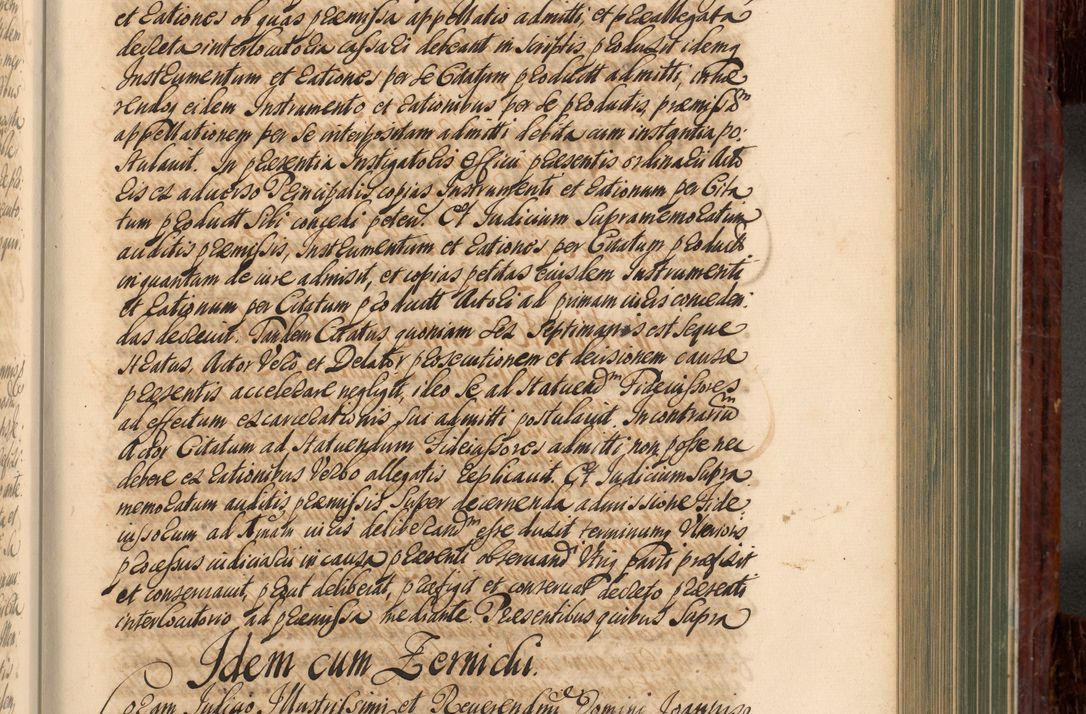 et Rationes ob quas praemissa appellatio admitti, et praeallegata
decreta interlocutoria cassari debeant in scriptis produxit idemq
Instrumentum et Rationes per se Citatum product admitti, inhae
rendoq eidem Instrumento et Rationibus per se productis, praemissam
appellationem per se interpositam admitti debita cum instantia po:
stulavit. In praesentia Instigatoris Officii praesentis ordinarii Acto
ris ex adverso Principalis copias Instrumenti et Rationum per Cita
tum product sibi concedi peten. Et Judicium Supramemoratum
auditis praemissis, Instrumentum et Rationes per Citatum product
inquantum de iure admisit, et copias petitas eiusdem Instrumenti
et Rationum per Citatum product Actori ad primam iuris conceden:
das decrevit. Tandem Citatus quoniam sex Septimanis est Seque
stratus, Actor Vero et Delator prosecutionem et decisionem causae
praesentis accelerare negligit, ideo se ad statuend.m Fideiussores
ad effectum excarcerationis sui admitti postulavit. In contrarium
Actor Citatum ad statuendum Fideiussores admitti, non posse nec
debere ex Rationibus Verbo allegatis replicavit. Et Judicium Supra
memoratum auditis praemissis Super decernenda admissione Fide
iussorum ad Amam iuris deliberand.m esse duxit terminumq
processus iudiciarii in causa praesenti observand Utriq parti praefixit
et conservavit, prout deliberat, praefigit et conservat decreto praesenti
interlocutorio ad praemissa mediante. Praesentibus quibus supra
Idem cum Zernichi.
Coram Judicio Illustrissimi et Reverendmi Domini Joannis